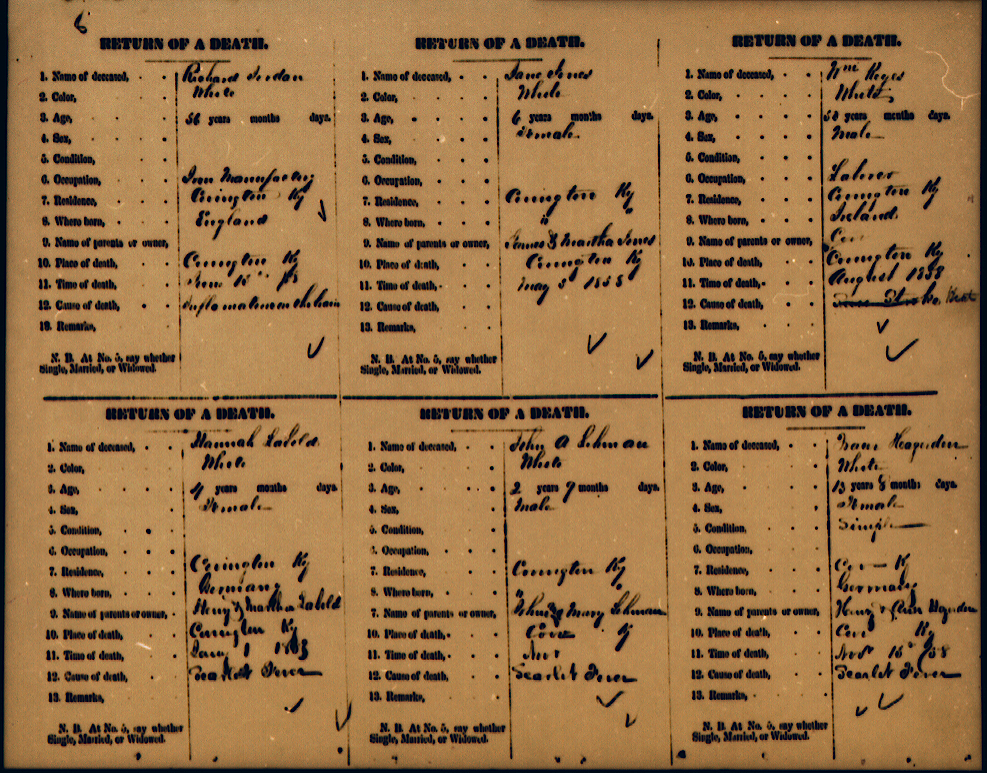 6
RETURN OF A DEATH.
1. Name of deceased, Richard Jordan
2. Color, White
3. Age, 56 years months days.
4. Sex,
5. Condition,
6. Occupation, Iron Manufactory
7. Residence, Covington Ky
8. Where born, England
9. Name of parents or owner,
10. Place of death, Covington Ky
11. Time of death, 58
12. Cause of death,
13. Remarks,
N. B. At No. 5, say whether
Single, Married, or Widowed.
RETURN OF A DEATH.
1. Name of deceased, Jane Jones
2. Color, White
3. Age, 6 years months days.
4. Sex, Female
5. Condition,
6. Occupation,
7. Residence, Covington Ky
8. Where born, " "
9. Name of parents or owner, James & Martha Jones
10. Place of death, Covington Ky
11. Time of death, May 3d 1858
12. Cause of death,
13. Remarks,
N. B. At No. 5, say whether
Single, Married, or Widowed.
RETURN OF A DEATH.
1. Name of deceased, Wm Keyes
2. Color, White
3. Age, 58 years months days.
4. Sex, Male
5. Condition,
6. Occupation, Laborer
7. Residence, Covington Ky
8. Where born, Ireland
9. Name of parents or owner, Cov
10. Place of death, Covington Ky
11. Time of death, August 1858
12. Cause of death,
13. Remarks,
N. B. At No. 5, say whether
Single, Married, or Widowed.
RETURN OF A DEATH.
1. Name of deceased, Hannah Labold
2. Color, White
3. Age, 4 years months days.
4. Sex, Female
5. Condition,
6. Occupation,
7. Residence, Covington Ky
8. Where born, Germany
9. Name of parents or owner, Henry & Martha Labold
10. Place of death, Covington Ky
11. Time of death, Jany 1
12. Cause of death, Scarlet Fever
13. Remarks,
N. B. At No. 5, say whether
Single, Married, or Widowed.
RETURN OF A DEATH.
1. Name of deceased, John A Lehman
2. Color, White
3. Age, 2 years 9 months days.
4. Sex, Male
5. Condition,
6. Occupation,
7. Residence, Covington Ky
8. Where born, " "
7. Name of parents or owner, John & Mary Lehman
10. Place of death, Cov Ky
11. Time of death, Nov
12. Cause of death, Scarlet Fever
13. Remarks,
N. B. At No. 5, say whether
Single, Married, or Widowed.
RETURN OF A DEATH.
1. Name of deceased,
2. Color, White
3. Age, 13 years 8 months days.
4. Sex, Female
5. Condition, Single
6. Occupation,
7. Residence, Cov K
8. Where born, Germany
9. Name of parents or owner, Henry & Ann
10. Place of death, Cov Ky
11. Time of death, Nov 15 /58
12. Cause of death, Scarlet Fever
13. Remarks,
N. B. At No. 5, say whether
Single, Married, or Widowed.